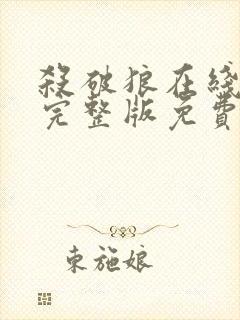 殺破狼在綫
完整版免費
東施娘